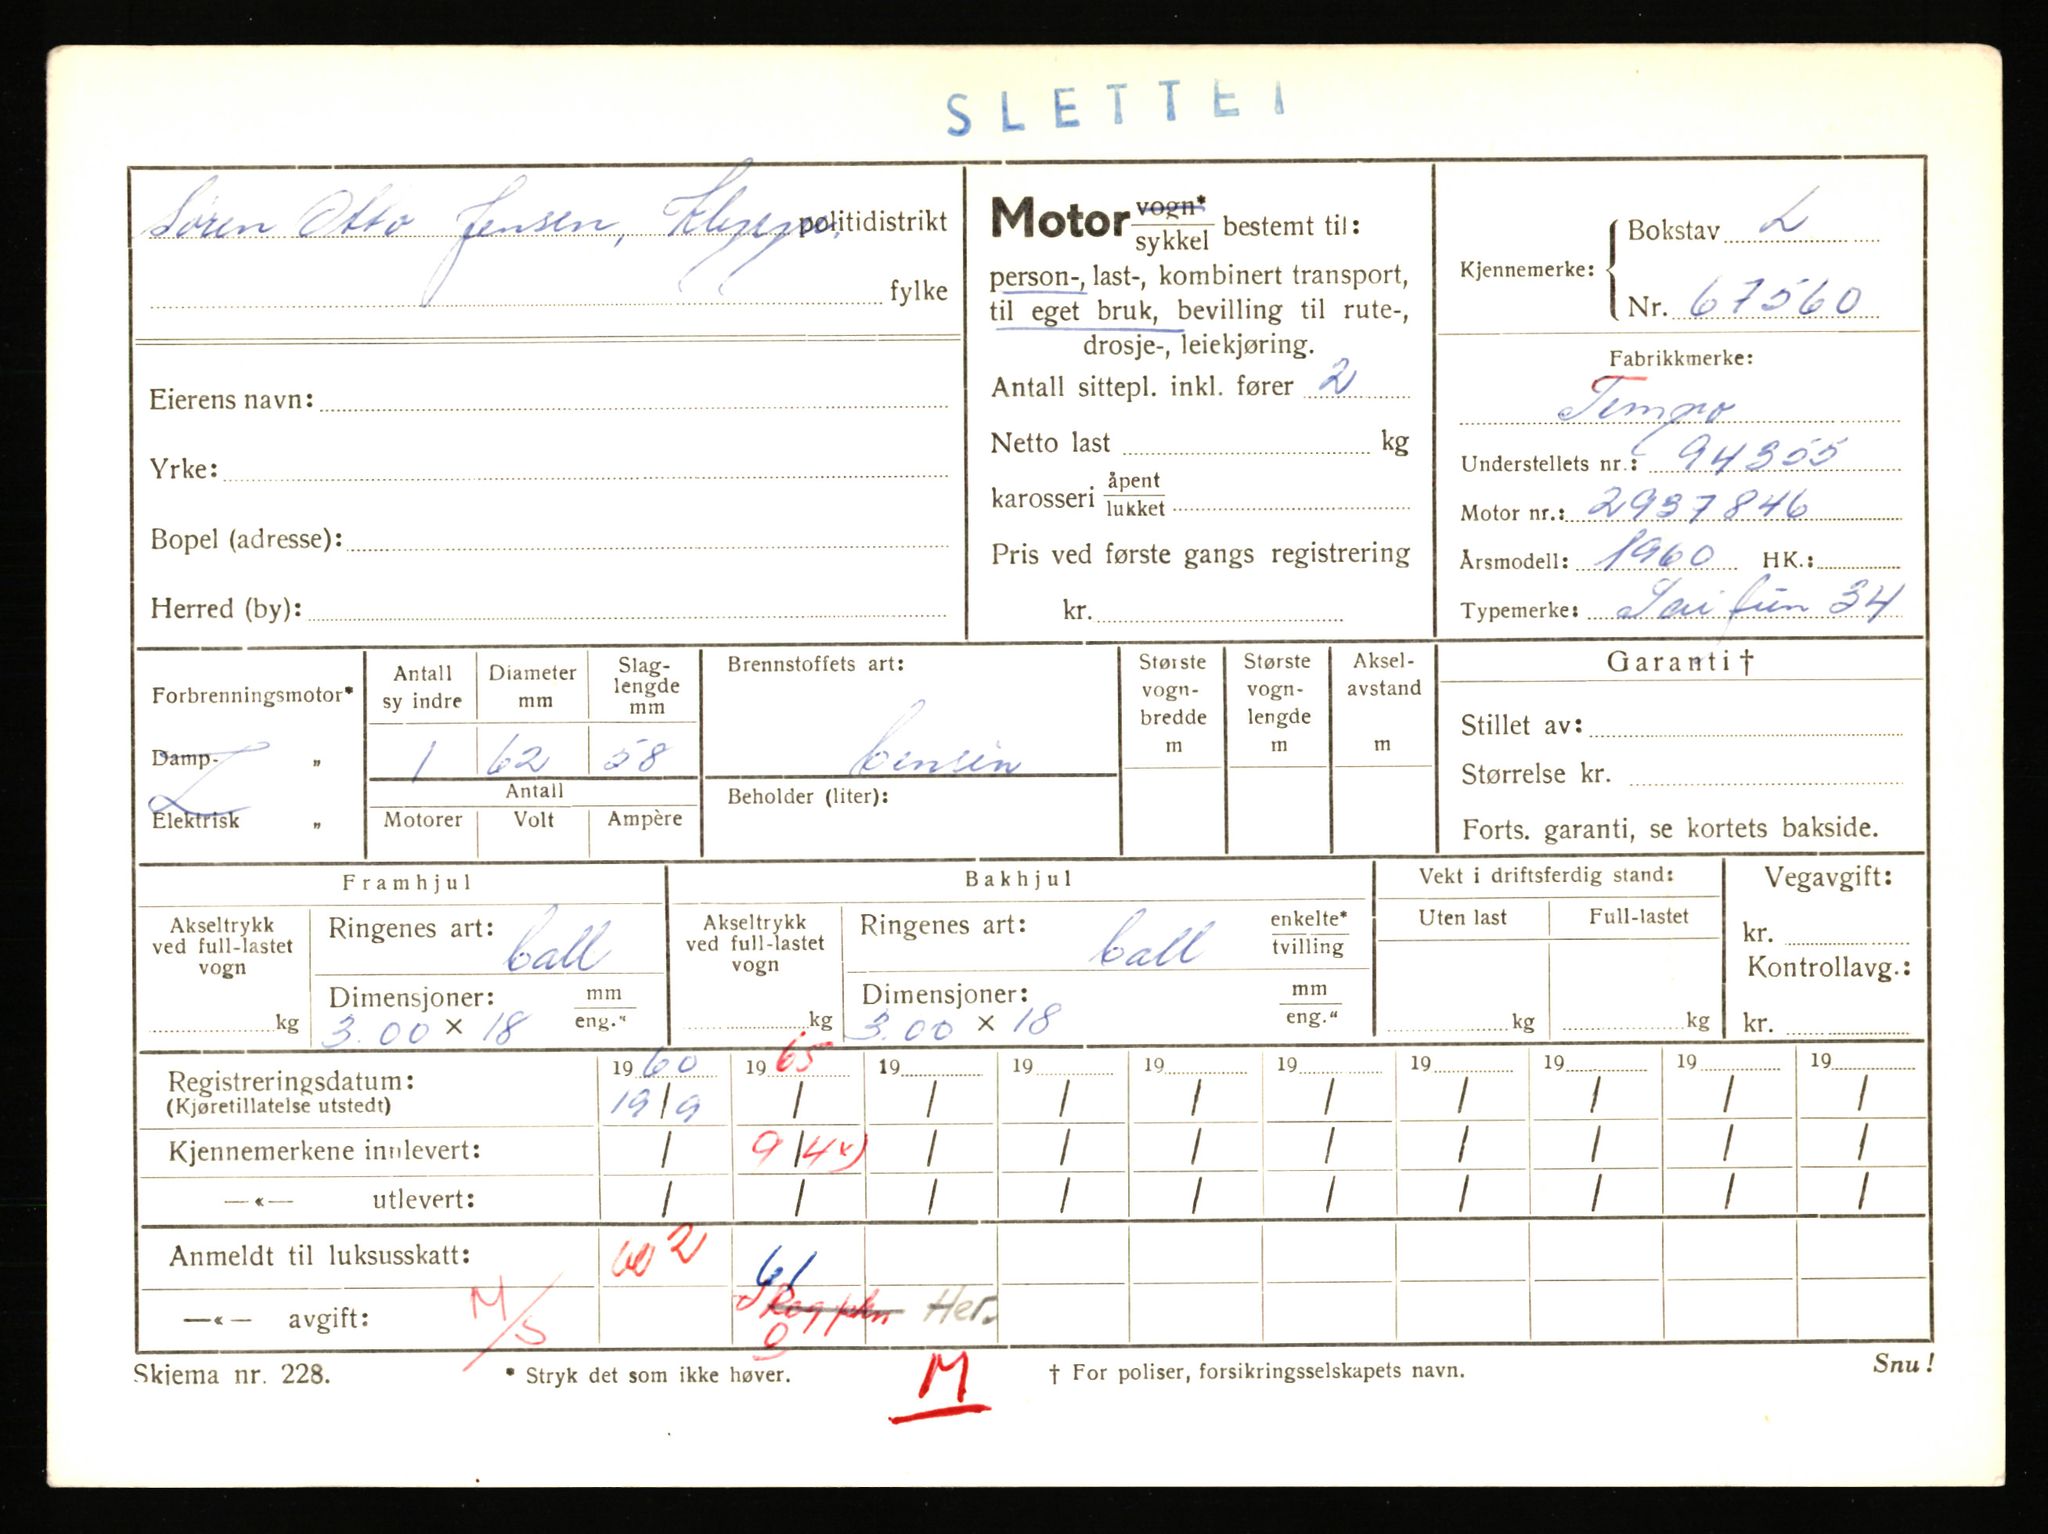 SLETTET
Søren Otto Jensen, Klepp. politidistrikt
fylke
Eierens navn:
Yrke:
Bopel (adresse):
Herred (by):
Motor vogn* / sykkel bestemt til:
person-, last-, kombinert transport,
til eget bruk, bevilling til rute-,
drosje-, leiekjøring.
Antall sittepl. inkl. fører 2
Netto last kg
karosseri åpent / lukket
Pris ved første gangs registrering
kr.
Kjennemerke: Bokstav L
Nr. 67560
Fabrikkmerke:
Tempo
Understellets nr.: 94355
Motor nr.: 2937846
Årsmodell: 1960 HK.:
Typemerke: Taifun 34
Forbrenningsmotor*
Damp- „
Elektrisk „
Antall sy indre
Diameter mm
Slag-
lengde
mm
1 62 58
Antall
Motorer Volt Ampère
Brennstoffets art:
bensin
Beholder (liter):
Største
vogn-
bredde
m
Største
vogn-
lengde
m
Aksel-
avstand
m
Garanti †
Stillet av:
Størrelse kr.
Forts. garanti, se kortets bakside.
Framhjul
Akseltrykk
ved full-lastet
vogn
kg
Ringenes art: ball
Dimensjoner: mm / eng."
3.00 × 18
Bakhjul
Akseltrykk
ved full-lastet
vogn
kg
Ringenes art: ball enkelte* / tvilling
Dimensjoner: mm / eng."
3.00 × 18
Vekt i driftsferdig stand:
Uten last Full-lastet
kg kg
Vegavgift:
kr.
Kontrollavg.:
kr.
Registreringsdatum: 1960 1965 19 19 19 19 19 19 19 19
(Kjøretillatelse utstedt) 19/9 / / / / / / / / /
Kjennemerkene innlevert: / 9/4 x) / / / / / / / /
—«— utlevert: / / / / / / / / / /
Anmeldt til luksusskatt: 2 61
—«— avgift: M/S Her.
0
Skjema nr. 228. * Stryk det som ikke høver. M † For poliser, forsikringsselskapets navn. Snu!